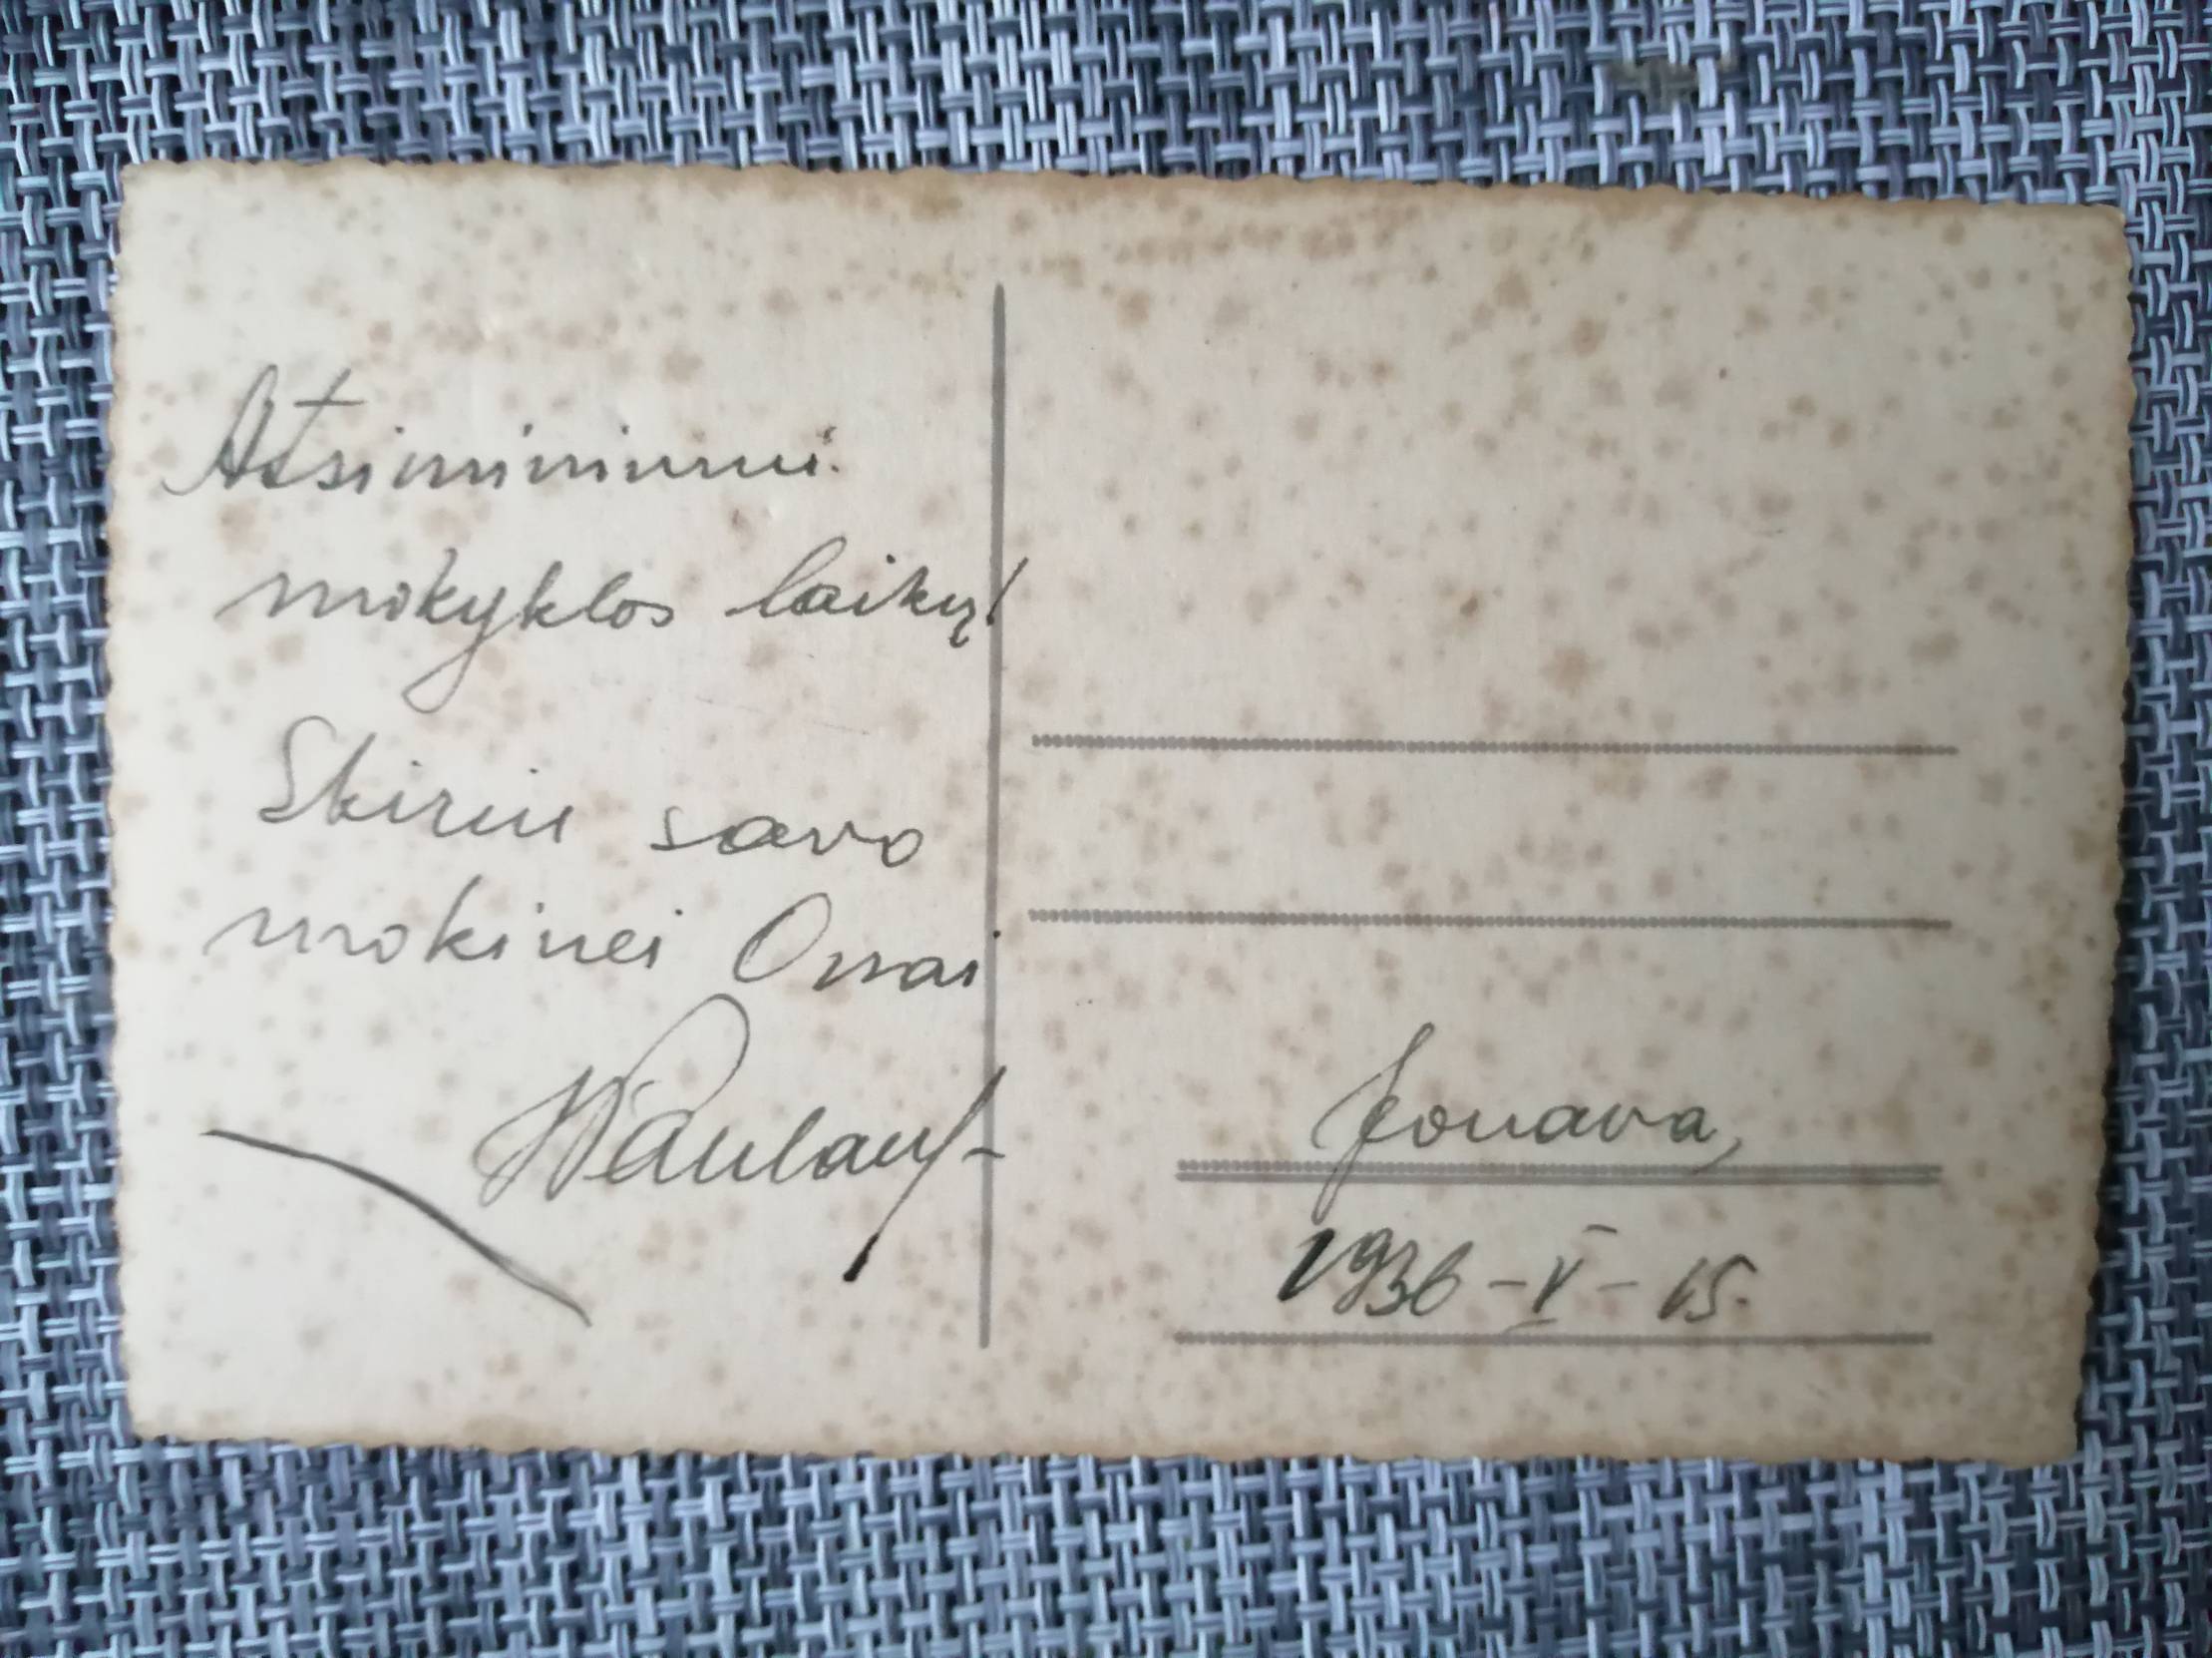 Atsiminimui
mokyklos laikų!
Skiriu savo
mokinei Onai
Jonava,
1936-V-15.